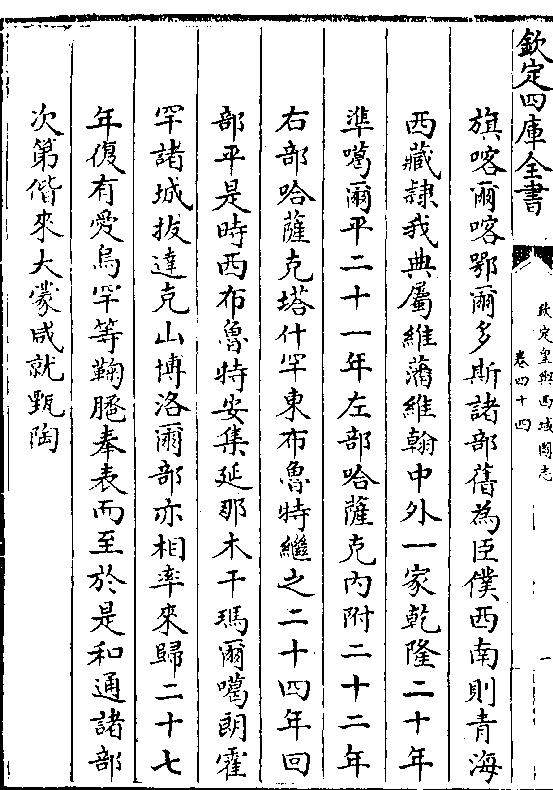 欽定四庫全書
欽定皇輿西域圖志
卷四十四
一
旗喀爾喀鄂爾多斯諸部舊為臣僕西南則青海
西藏隸我典屬維藩維翰中外一家乾隆二十年
準噶爾平二十一年左部哈薩克內附二十二年
右部哈薩克塔什罕東布魯特繼之二十四年回
部平是時西布魯特安集延那木干瑪爾噶朗霍
罕諸城拔達克山博洛爾部亦相率來歸二十七
年復有愛烏罕等鞠䠆奉表而至於是和通諸部
次第偕來大蒙咸就甄陶